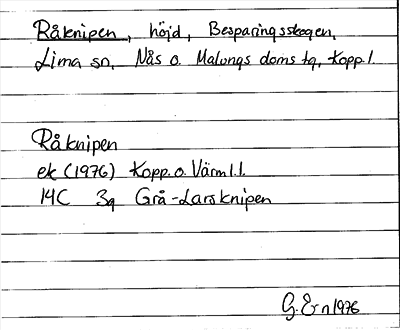 Råknipen, höjd, Besparingsskogen,
Lima sn, Nås o. Malungs doms tg, Kopp. l.
Råknipen
ek (1976) Kopp. o. Värml. l.
14C 3q Grå-Larsknipen
G. Ern 1976